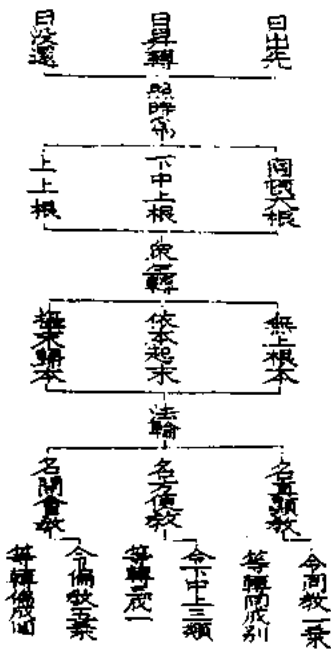 日出先
日昇轉
日没還
照時為
圓頓大根
下中上根
上上根
衆生轉
無上根本
依本起末
攝末歸本
法輪
名直顯教
名方便教
名開會教
令同教一乗
等轉同成別
令下中上三類
等轉三成一
令偏教五乗
等轉偏成圓